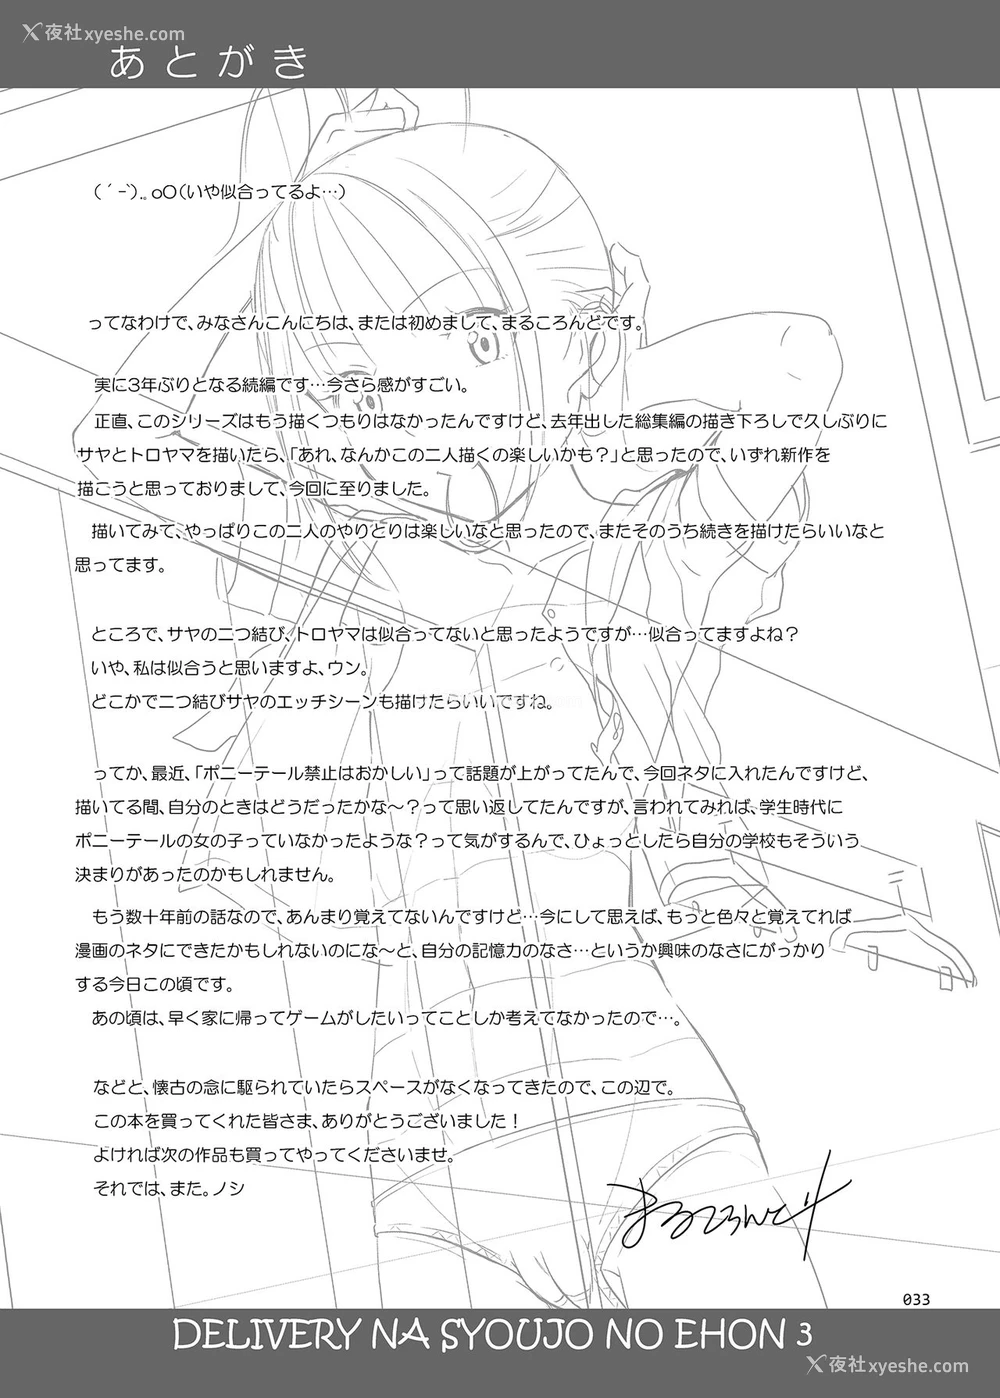 夜社xyeshe.com
あとがき
（ ´ -`）.｡oO（いや似合ってるよ…）
ってなわけで、みなさんこんにちは、または初めまして、まるころんどです。
実に3年ぶりとなる続編です…今さら感がすごい。
正直、このシリーズはもう描くつもりはなかったんですけど、去年出した総集編の描き下ろしで久しぶりに
サヤとトロヤマを描いたら、「あれ、なんかこの二人描くの楽しいかも？」と思ったので、いずれ新作を
描こうと思っておりまして、今回に至りました。
描いてみて、やっぱりこの二人のやりとりは楽しいなと思ったので、またそのうち続きを描けたらいいなと
思ってます。
ところで、サヤの二つ結び、トロヤマは似合ってないと思ったようですが…似合ってますよね？
いや、私は似合うと思いますよ、ウン。
どこかで二つ結びサヤのエッチシーンも描けたらいいですね。
ってか、最近、「ポニーテール禁止はおかしい」って話題が上がってたんで、今回ネタに入れたんですけど、
描いてる間、自分のときはどうだったかな～？って思い返してたんですが、言われてみれば、学生時代に
ポニーテールの女の子っていなかったような？って気がするんで、ひょっとしたら自分の学校もそういう
決まりがあったのかもしれません。
もう数十年前の話なので、あんまり覚えてないんですけど…今にして思えば、もっと色々と覚えてれば
漫画のネタにできたかもしれないのにな～と、自分の記憶力のなさ…というか興味のなさにがっかり
する今日この頃です。
あの頃は、早く家に帰ってゲームがしたいってことしか考えてなかったので…。
などと、懐古の念に駆られていたらスペースがなくなってきたので、この辺で。
この本を買ってくれた皆さま、ありがとうございました！
よければ次の作品も買ってやってくださいませ。
それでは、また。ノシ
まるころんど
033
DELIVERY NA SYOUJO NO EHON 3
夜社xyeshe.com